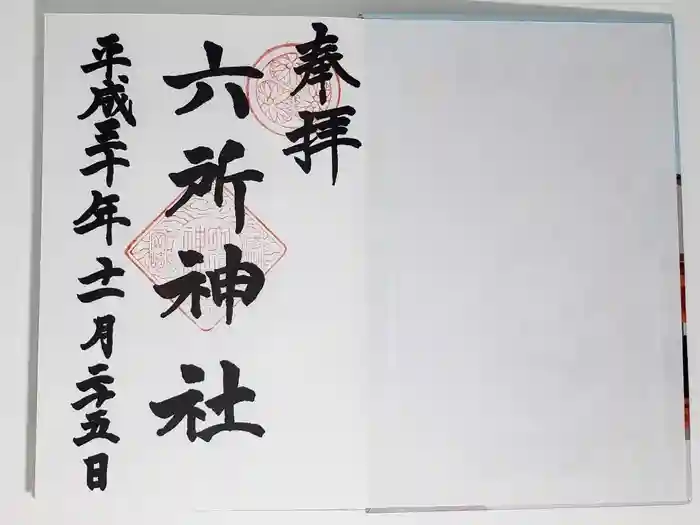 奉拝
六所神社
平成三十年十一月二十五日